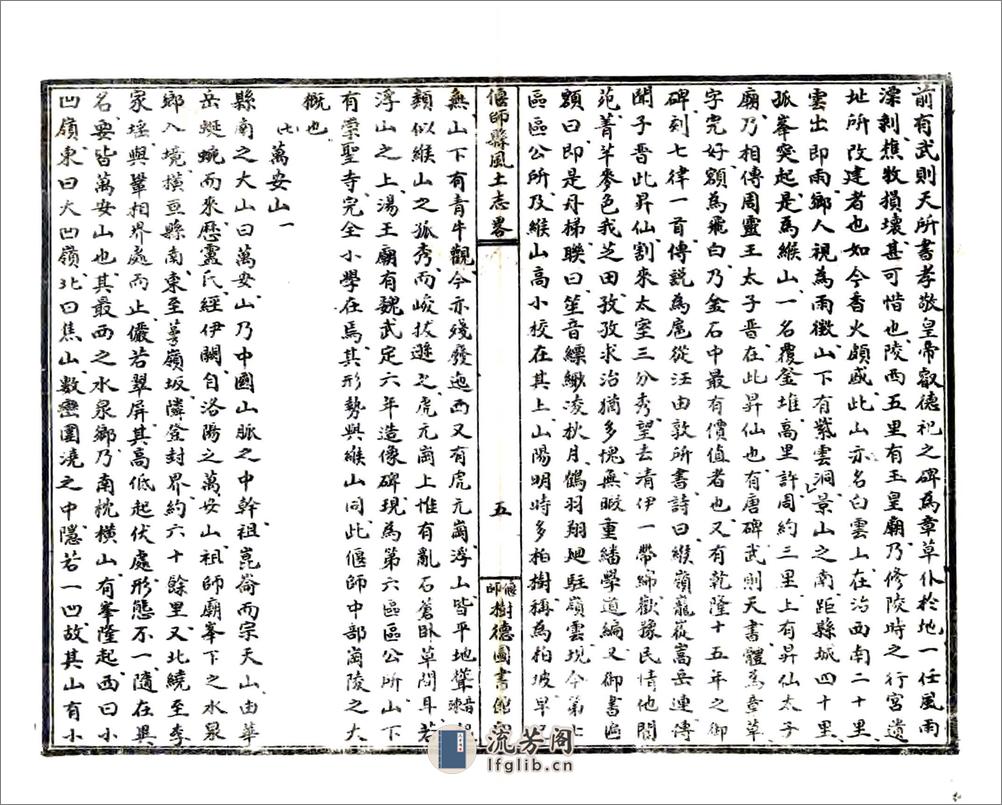 前有武則天所書孝敬皇帝叡德祀之碑為章草仆於地一任風雨
濛剥樵牧損壞甚可惜也陵西五里有玉皇廟乃修陵時之行宮遺
址所改建者也如今香火頗盛此山亦名白雲山在治西南二十里
雲出即雨鄉人視為雨徵山下有紫雲洞景山之南距縣城四十里
孤峯突起是為緱山一名覆釜堆高里許周約三里上有昇仙太子
廟乃相傳周靈王太子晋在此昇仙也有唐碑武則天書體為章草
字完好額為飛白乃金石中最有價值者也又有乾隆十五年之御
碑刻七律一首傳説為扈從汪由敦所書詩曰緱嶺巃嵸嵩岳連傳
聞子晋此昇仙割來太室三分秀望去清伊一帶綿歡豫民情他閬
苑菁芊麥色我芝田孜孜求治猶多愧無暇重繙學道編又御書匾
額曰即是丹梯聯曰笙音縹緲凌秋月鶴羽翔迴駐嶺雲現今第七
區區公所及緱山高小校在其上山陽明時多柏樹稱為柏坡早
偃師縣風土志畧
五
偃師樹德圖書館
無山下有青牛觀今亦殘廢迤西又有虎元崗浮山皆平地聳
頪似緱山之孤秀而峻拔遜之虎元崗上惟有亂石蒼卧草間耳若
浮山之上湯王廟有魏武定六年造像碑現為第六區區公所山下
有崇聖寺完全小學在焉其形勢與緱山同此偃師中部崗陵之大
概也
七萬安山一
縣南之大山曰萬安山乃中國山脈之中幹祖崑崙而宗天山由華
岳蜒蜿而來歷盧氏經伊闕自洛陽之萬安山祖師廟峯下之水泉
鄉入境橫亘縣南東至萼嶺坂隣登封界約六十餘里又北繞至李
家塋與鞏相界處而止儼若翠屏其高低起伏處形態不一隨在異
名要皆萬安山也其最西之水泉鄉乃南枕橫山有峯隆起西曰小
凹嶺東曰大凹嶺北曰焦山數巒圍澆之中隱若一凹故其山有小
流芳阁
lfglib.cn